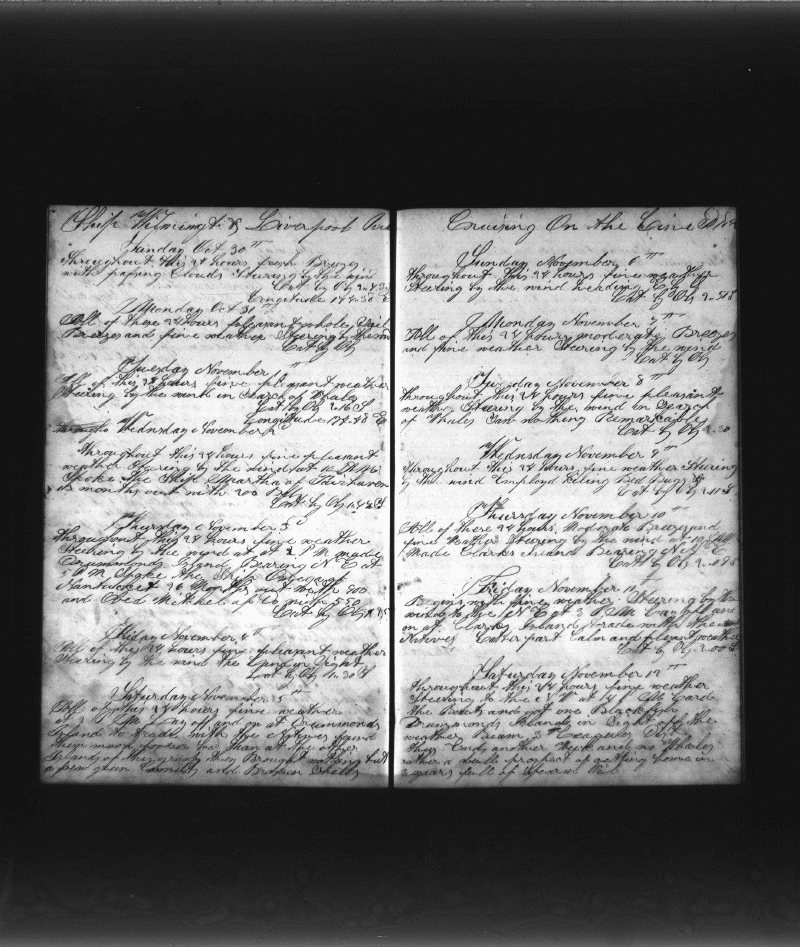 Ship Wilmingt & Liverpool
Sunday Oct 30th
Throughout this 24 hours fresh Breezes
with passing Clouds Steering by the wind
Lat by Ob 2.43
Longitude 174.30 E
Monday Oct 31st
All of these 24 hours pleasant whole sail
Breezes and fine weather Steering by the wind
Lat by Ob
Tuesday November 1st
All of this 24 hours fine pleasant weather
Steering by the wind in Search of Whales
Lat by Ob 2.16 S
Longitude 174.48 E
Wednsday November 2
Throughout this 24 hours fine pleasant
weather Steering by the wind at 10 AM
Spoke the Ship Martha of Fairhaven
months out with 200 Bbls
Lat by Ob 1.42 S
Thursday November 3d
Throughout this 24 hours fine weather
Steering by the wind at 2 PM made
Drummonds Island Bearing N E at
5 PM Spoke the Ship
Nantucket 26 Months out with 900
and Obed Mitchel of Do with 550
Lat by Ob
Friday November 4th
All of this 24 hours fine pleasant weather
Steering by the wind the Land in Sight
Lat by Ob 1.30 S
Saturday November 5th
All of this 24 hours fine weather
at 3 PM Lay off and on at Drummonds
Island to trade with the Natives found
them much poorer than at the other
Islands of this group they Brought nothing but
a few green Coconuts and Broken Shells
Cruising On the Line
Sunday November 6th
Throughout this 24 hours fine weather
Steering by the wind heading E by S
Lat by Ob 2.51 S
Monday November 7th
All of this 24 hours moderate Breezes
and fine weather Steering by the wind
Lat by Ob
Tuesday November 8th
throughout this 24 hours fine pleasant
weather Steering by the wind in Search
of Whales Saw nothing Remarkable
Lat by Ob 2.30
Wednsday November 9th
Throughout this 24 hours fine weather Steering
by the wind Employd Killing Bed Bugs &c
Lat by Ob 2.11 S
Thursday November 10th
All of these 24 hours Moderate Breezes and
fine Weather Steering by the wind at 10 AM
Made Clarks Island Bearing N E
Lat by Ob
Friday November 11th
Begins with fine weather Steering by the
wind at 3 PM Lay off and
on at Clarks Island trade with the
Natives Latter part Calm and pleasant weather
Lat by Ob 2.00 S
Saturday November 12th
throughout this 24 hours fine weather
Steering to the at
the Boats and got one Blackfish
Drummonds Island in Sight off the
weather Beam 3
thus Ends another Week and no Whales
rather a dull prospect of getting home in
3 years full of Sperm Oil